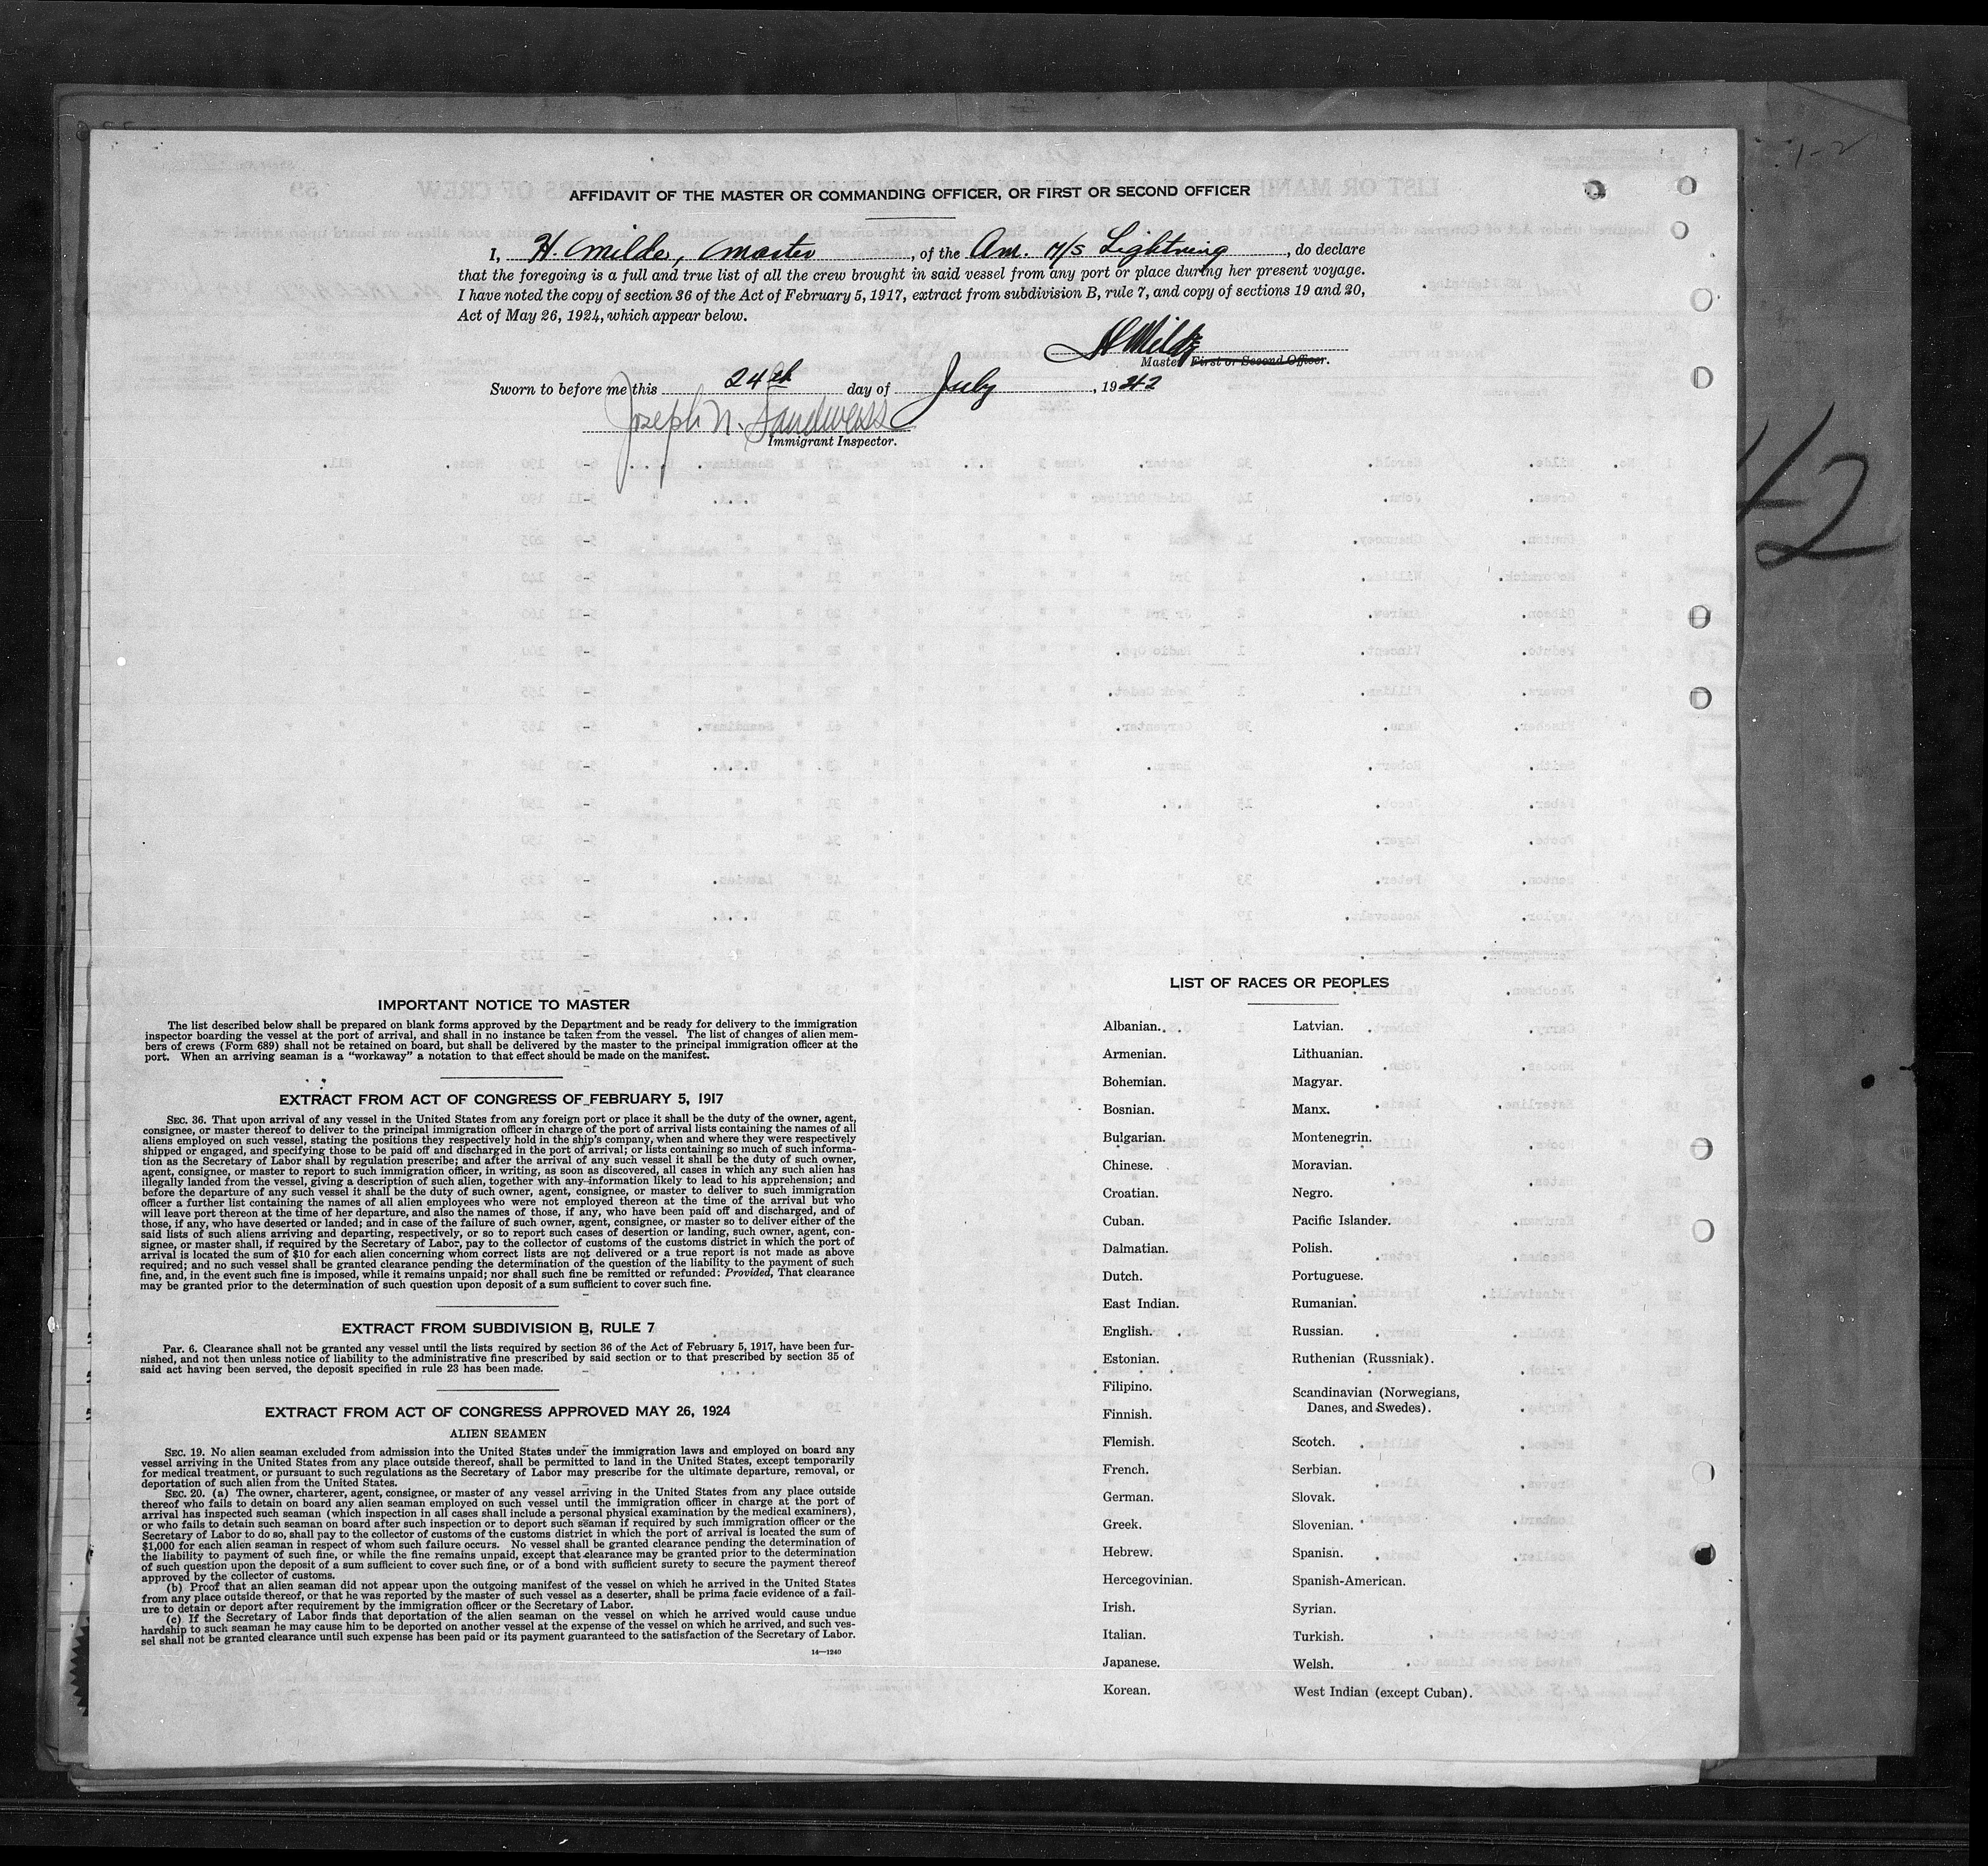 AFFIDAVIT OF THE MASTER OR COMMANDING OFFICER, OR FIRST OR SECOND OFFICER
I, H. Milde, Master, of the Am. M/S Lightning, do declare
that the foregoing is a full and true list of all the crew brought in said vessel from any port or place during her present voyage.
I have noted the copy of section 36 of the Act of February 5, 1917, extract from subdivision B, rule 7, and copy of sections 19 and 20,
Act of May 26, 1924, which appear below.
H Milde
Master First or Second Officer.
Sworn to before me this 24th day of July, 1942
Joseph N. Sandweiss
Immigrant Inspector.
42
IMPORTANT NOTICE TO MASTER
The list described below shall be prepared on blank forms approved by the Department and be ready for delivery to the immigration
inspector boarding the vessel at the port of arrival, and shall in no instance be taken from the vessel. The list of changes of alien mem-
bers of crews (Form 689) shall not be retained on board, but shall be delivered by the master to the principal immigration officer at the
port. When an arriving seaman is a "workaway" a notation to that effect should be made on the manifest.
EXTRACT FROM ACT OF CONGRESS OF FEBRUARY 5, 1917
SEC. 36. That upon arrival of any vessel in the United States from any foreign port or place it shall be the duty of the owner, agent,
consignee, or master thereof to deliver to the principal immigration officer in charge of the port of arrival lists containing the names of all
aliens employed on such vessel, stating the positions they respectively hold in the ship's company, when and where they were respectively
shipped or engaged, and specifying those to be paid off and discharged in the port of arrival; or lists containing so much of such informa-
tion as the Secretary of Labor shall by regulation prescribe; and after the arrival of any such vessel it shall be the duty of such owner,
agent, consignee, or master to report to such immigration officer, in writing, as soon as discovered, all cases in which any such alien has
illegally landed from the vessel, giving a description of such alien, together with any information likely to lead to his apprehension; and
before the departure of any such vessel it shall be the duty of such owner, agent, consignee, or master to deliver to such immigration
officer a further list containing the names of all alien employees who were not employed thereon at the time of the arrival but who
will leave port thereon at the time of her departure, and also the names of those, if any, who have been paid off and discharged, and of
those, if any, who have deserted or landed; and in case of the failure of such owner, agent, consignee, or master so to deliver either of the
said lists of such aliens arriving and departing, respectively, or so to report such cases of desertion or landing, such owner, agent, con-
signee, or master shall, if required by the Secretary of Labor, pay to the collector of customs of the customs district in which the port of
arrival is located the sum of $10 for each alien concerning whom correct lists are not delivered or a true report is not made as above
required; and no such vessel shall be granted clearance pending the determination of the question of the liability to the payment of such
fine, and, in the event such fine is imposed, while it remains unpaid; nor shall such fine be remitted or refunded: Provided, That clearance
may be granted prior to the determination of such question upon deposit of a sum sufficient to cover such fine.
EXTRACT FROM SUBDIVISION B, RULE 7
Par. 6. Clearance shall not be granted any vessel until the lists required by section 36 of the Act of February 5, 1917, have been fur-
nished, and not then unless notice of liability to the administrative fine prescribed by said section or to that prescribed by section 35 of
said act having been served, the deposit specified in rule 23 has been made.
EXTRACT FROM ACT OF CONGRESS APPROVED MAY 26, 1924
ALIEN SEAMEN
SEC. 19. No alien seaman excluded from admission into the United States under the immigration laws and employed on board any
vessel arriving in the United States from any place outside thereof, shall be permitted to land in the United States, except temporarily
for medical treatment, or pursuant to such regulations as the Secretary of Labor may prescribe for the ultimate departure, removal, or
deportation of such alien from the United States.
SEC. 20. (a) The owner, charterer, agent, consignee, or master of any vessel arriving in the United States from any place outside
thereof who fails to detain on board any alien seaman employed on such vessel until the immigration officer in charge at the port of
arrival has inspected such seaman (which inspection in all cases shall include a personal physical examination by the medical examiners),
or who fails to detain such seaman on board after such inspection or to deport such seaman if required by such immigration officer or the
Secretary of Labor to do so, shall pay to the collector of customs of the customs district in which the port of arrival is located the sum of
$1,000 for each alien seaman in respect of whom such failure occurs. No vessel shall be granted clearance pending the determination of
the liability to payment of such fine, or while the fine remains unpaid, except that clearance may be granted prior to the determination
of such question upon the deposit of a sum sufficient to cover such fine, or of a bond with sufficient surety to secure the payment thereof
approved by the collector of customs.
(b) Proof that an alien seaman did not appear upon the outgoing manifest of the vessel on which he arrived in the United States
from any place outside thereof, or that he was reported by the master of such vessel as a deserter, shall be prima facie evidence of a fail-
ure to detain or deport after requirement by the immigration officer or the Secretary of Labor.
(c) If the Secretary of Labor finds that deportation of the alien seaman on the vessel on which he arrived would cause undue
hardship to such seaman he may cause him to be deported on another vessel at the expense of the vessel on which he arrived, and such ves-
sel shall not be granted clearance until such expense has been paid or its payment guaranteed to the satisfaction of the Secretary of Labor.
14—1240
LIST OF RACES OR PEOPLES
Albanian.
Armenian.
Bohemian.
Bosnian.
Bulgarian.
Chinese.
Croatian.
Cuban.
Dalmatian.
Dutch.
East Indian.
English.
Estonian.
Filipino.
Finnish.
Flemish.
French.
German.
Greek.
Hebrew.
Hercegovinian.
Irish.
Italian.
Japanese.
Korean.
Latvian.
Lithuanian.
Magyar.
Manx.
Montenegrin.
Moravian.
Negro.
Pacific Islander.
Polish.
Portuguese.
Rumanian.
Russian.
Ruthenian (Russniak).
Scandinavian (Norwegians,
Danes, and Swedes).
Scotch.
Serbian.
Slovak.
Slovenian.
Spanish.
Spanish-American.
Syrian.
Turkish.
Welsh.
West Indian (except Cuban).